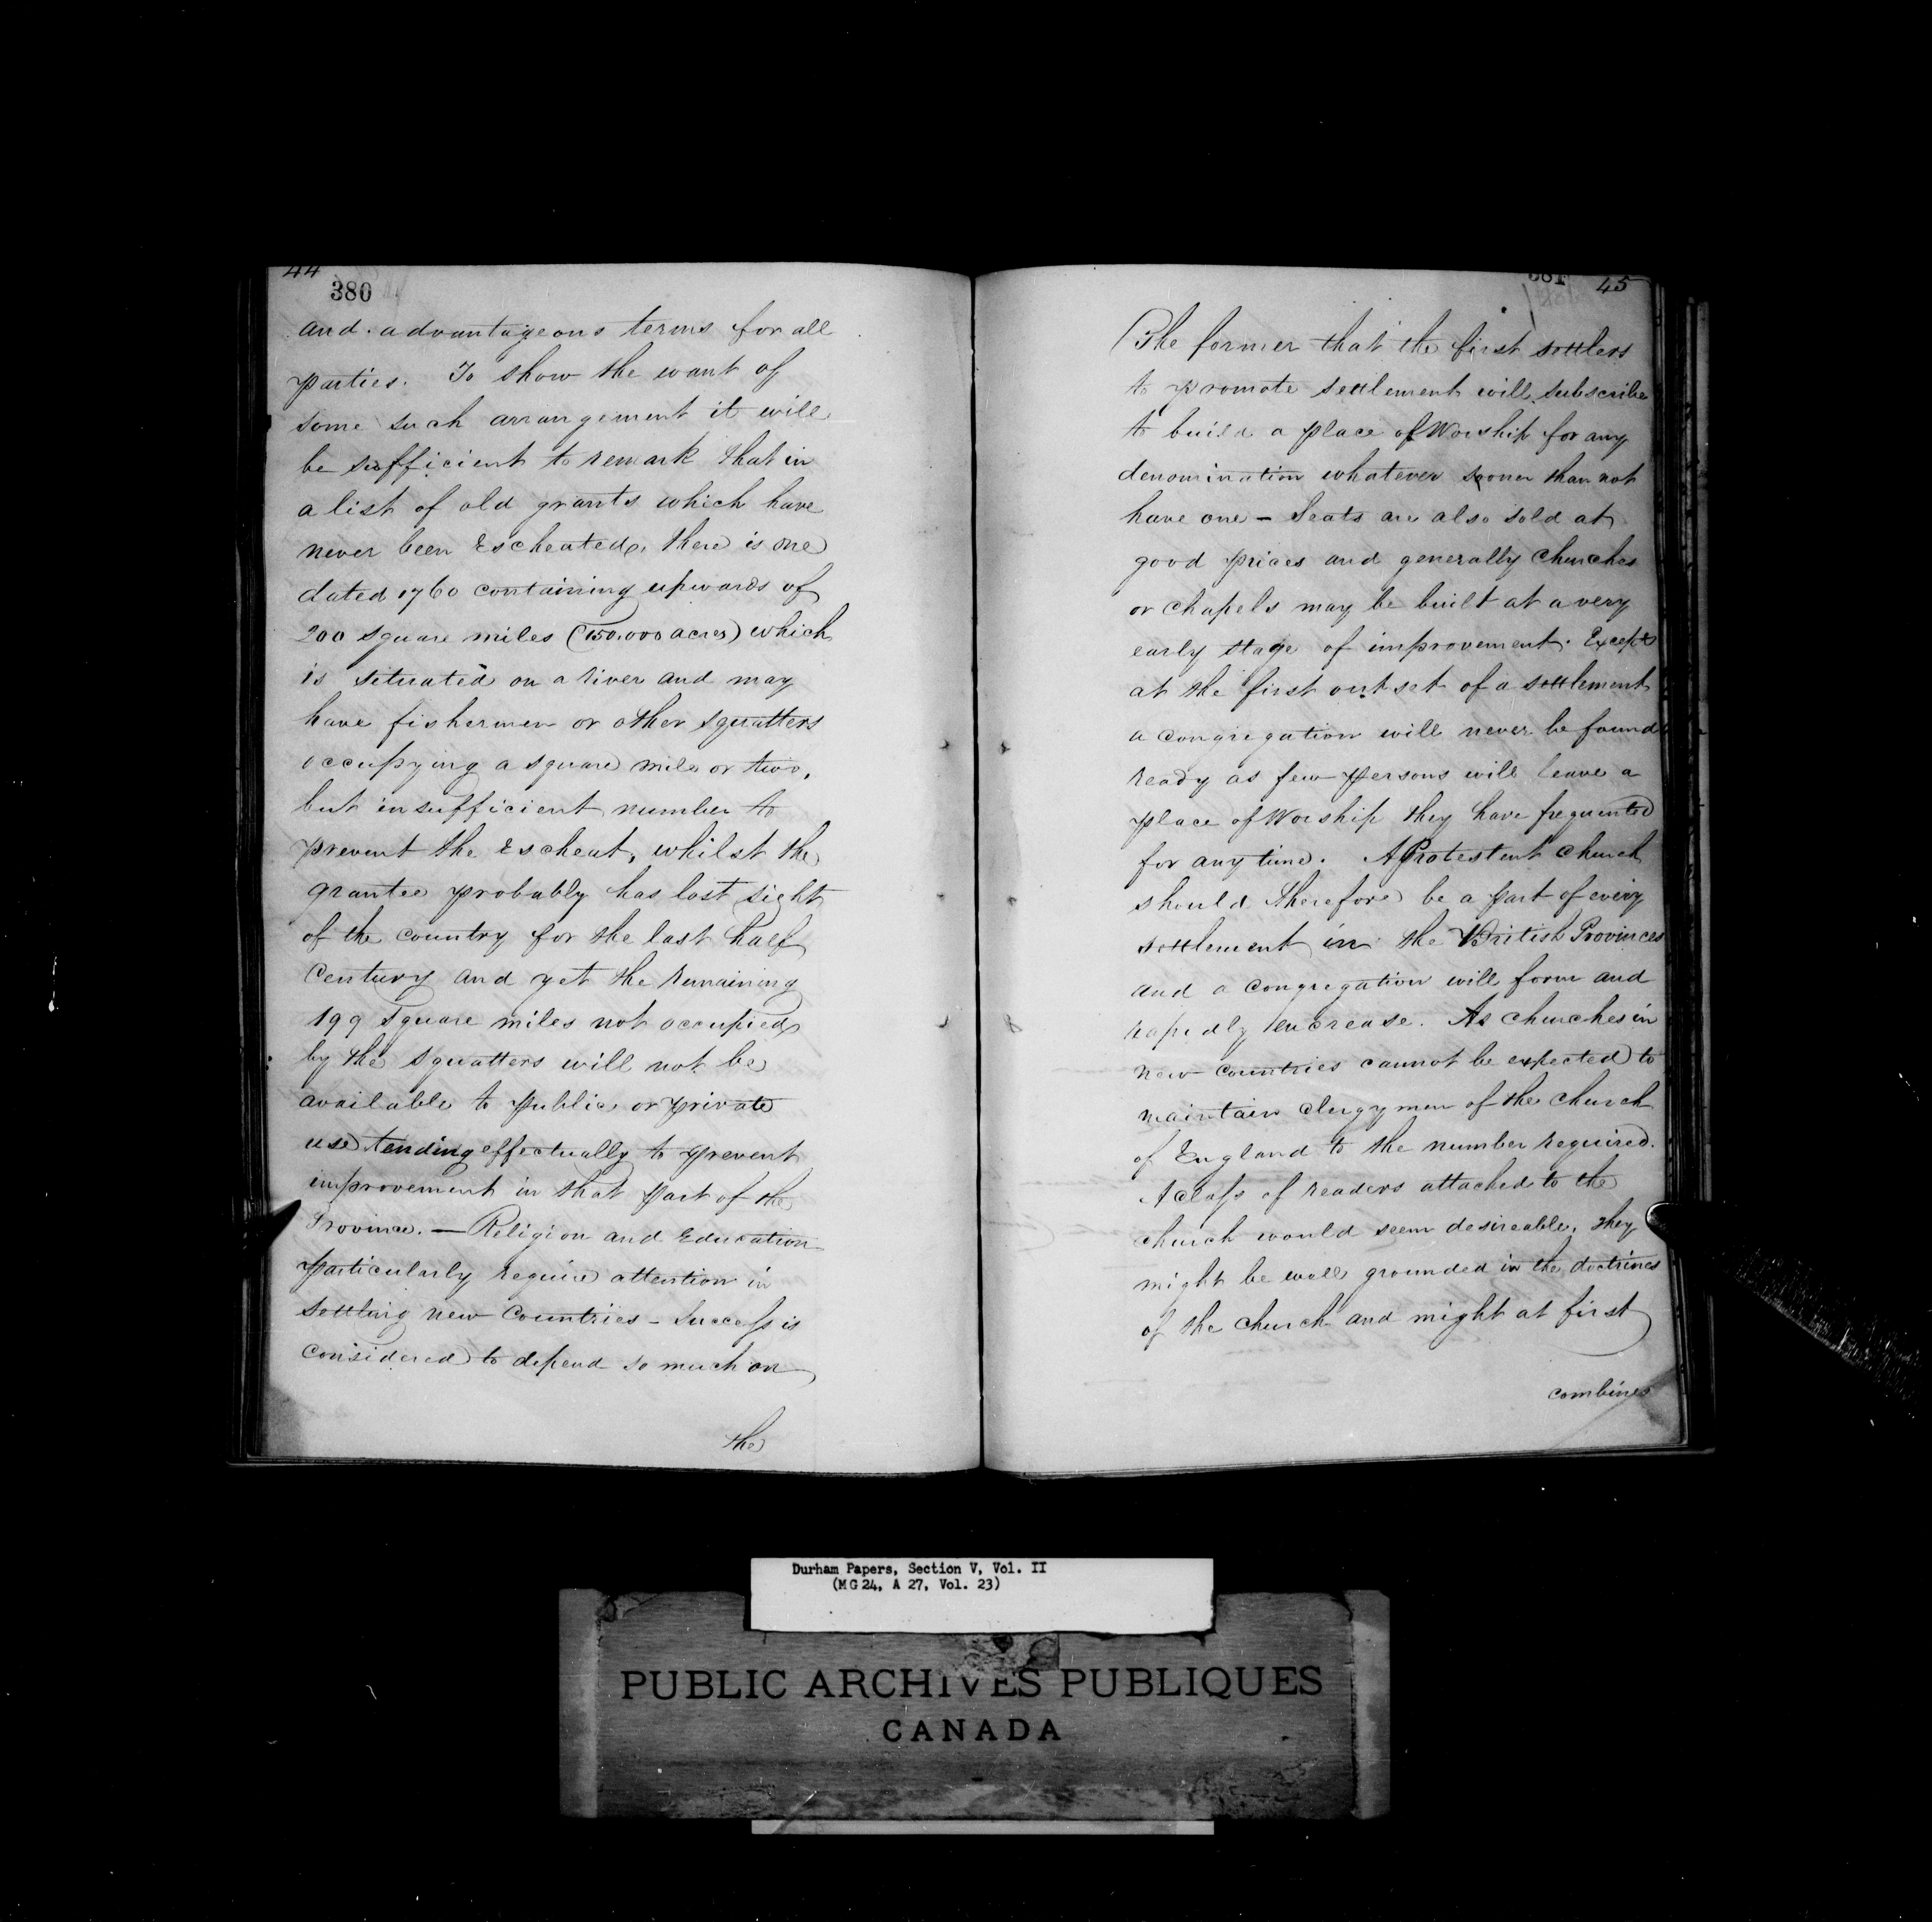 44
380
and advantageous terms for all
parties. To show the want of
some such arrangement it will
be sufficient to remark that in
a list of old grants which have
never been Escheated, there is one
dated 1760 containing upwards of
200 square miles (150.000 acres) which
is situated on a river and may
have fishermen or other squatters
occupying a square mile or two,
but in sufficient number to
prevent the Escheat, whilst the
grantee probably has lost sight
of the country for the last half
Century and yet the remaining
199 square miles not occupied
by the squatters will not be
available to public or private
use tending effectually to prevent
improvement in that part of the
Province. — Religion and Education
particularly require attention in
settling new Countries - Success is
considered to depend so much on
the
381 45
The former that the first settlers
to promote settlement will subscribe
to build a place of Worship for any
denomination whatever sooner than not
have one - Seats are also sold at
good prices and generally Churches
or chapels may be built at a very
early stage of improvement. Except
at the first outset of a settlement
a congregation will never be found
ready as few persons will leave a
place of Worship they have frequented
for any time. A Protestent church
should therefore be a part of every
settlement in the British Provinces
and a congregation will form and
rapidly encrease. As churches in
new countries cannot be expected to
maintain clergymen of the church
of England to the number required.
A class of readers attached to the
church would seem desireable, they
might be well grounded in the doctrines
of the church and might at first
combines
Durham Papers, Section V, Vol. II
(MG 24, A 27, Vol. 23)
PUBLIC ARCHIVES PUBLIQUES
CANADA